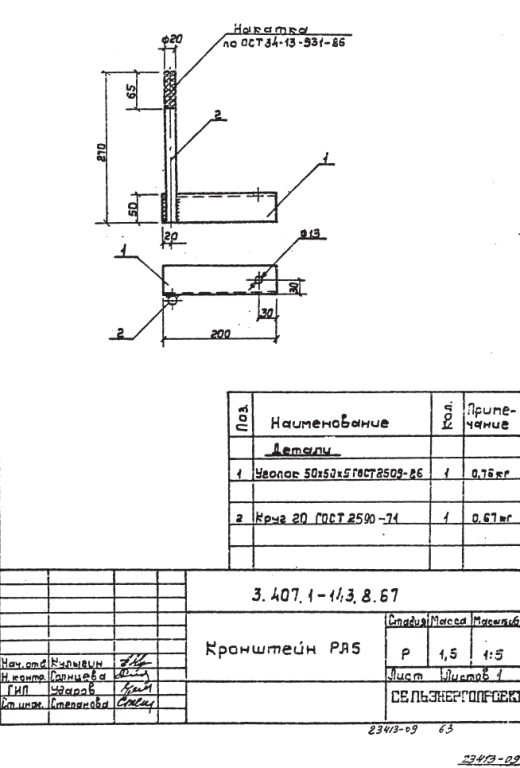 Накатка
по ОСТ 34-13-931-86
ø20
65
2
270
1
50
20
ø13
1
30
30
2
200
Поз.
Наименование
Кол.
Приме-
чание
Детали
1 Уголок 50х50х5 ГОСТ 8509-86 1 0,75кг
2 Круг 20 ГОСТ 2590-71 1 0,67кг
3.407.1-143.8.67
Кронштейн РА5
Стадия Масса Масштаб
Р 1,5 1:5
Лист Листов 1
Нач.отд Кулыгин
Н.контр. Солнцева
ГИП Ударов
Ст.инж. Степанова
СЕЛЬЭНЕРГОПРОЕКТ
23413-09 63
23413-09